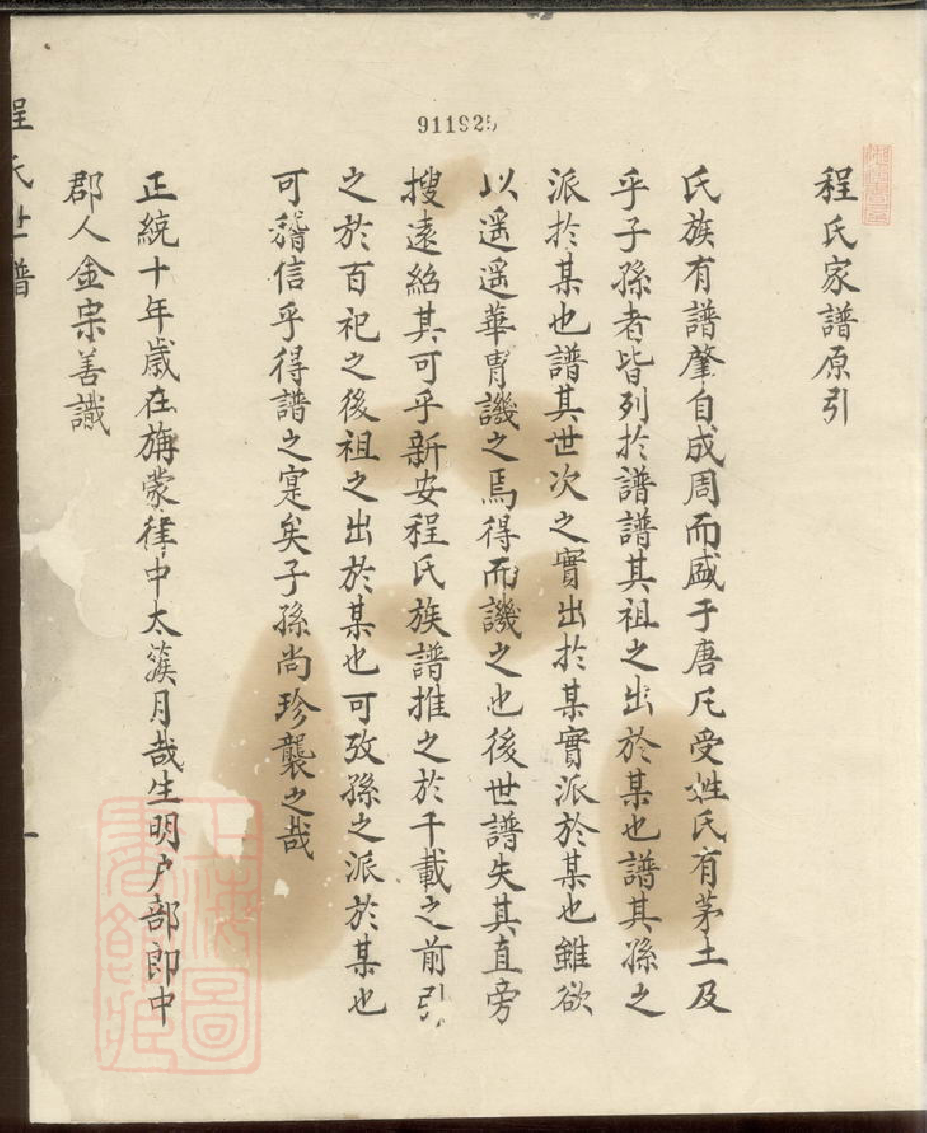 911925
程氏家譜原引
氏族有譜肇自成周而盛于唐凡受姓氏有茅土及
乎子孫者皆列於譜譜其祖之出於某也譜其孫之
派於某也譜其世次之實出於某實派於某也雖欲
以遥遥華胄譏之焉得而譏之也後世譜失其直旁
搜遠紹其可乎新安程氏族譜推之於千載之前引
之於百祀之後祖之出於某也可攷孫之派於某也
可稽信乎得譜之寔矣子孫尚珍襲之哉
正統十年歲在旃蒙律中太簇月哉生明户部郎中
郡人金宗善識
程氏世譜
一
上海圖書館藏